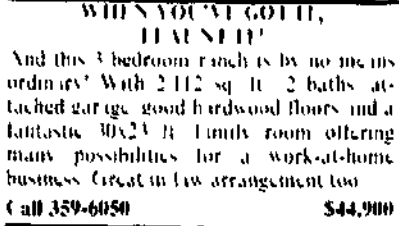 WHEN YOU'VE GOT IT,
FLAUNT IT!
And this 3 bedroom ranch is by no means
ordinary! With 2112 sq. ft. 2 baths, at-
tached garage, good hardwood floors and a
fantastic 30x23 ft. family room offering
many possibilities for a work-at-home
business. Great in law arrangement too.
Call 359-6050 $44,900